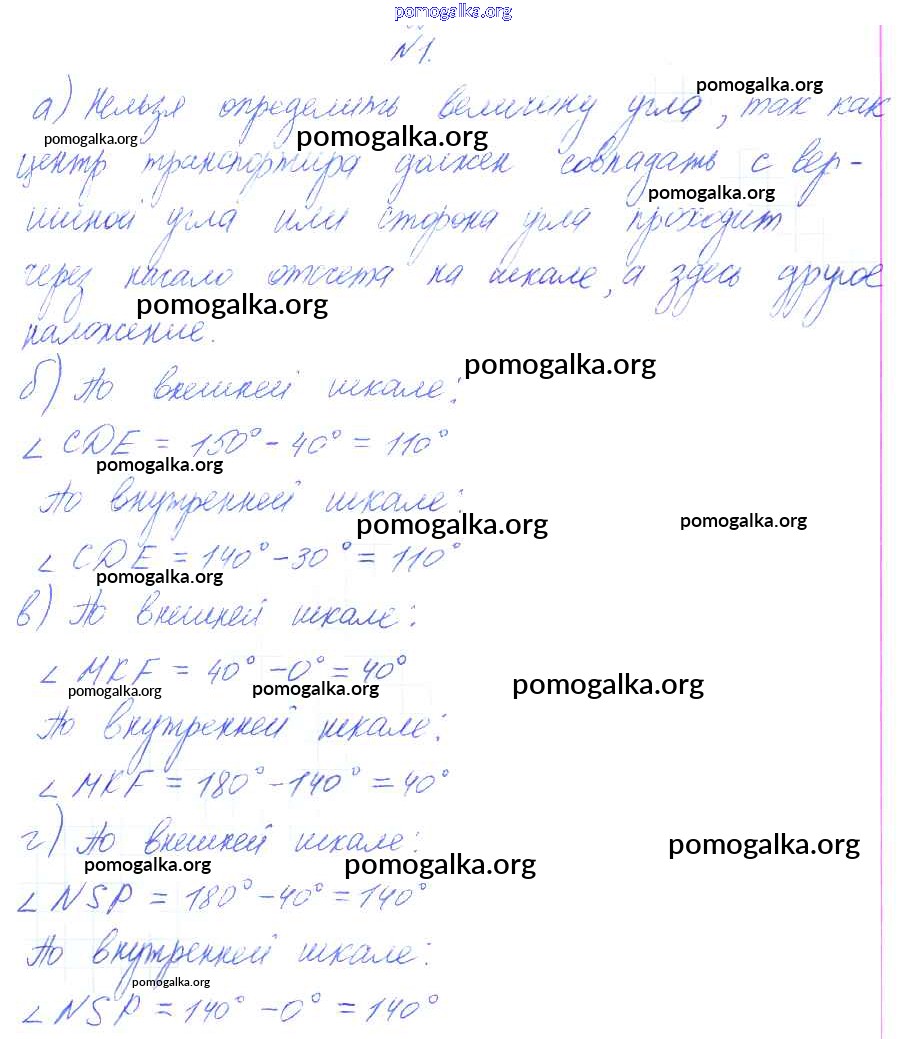 pomogalka.org
№1.
pomogalka.org
а) Нельзя определить величину угла, так как
pomogalka.org pomogalka.org
центр транспортира должен совпадать с вер-
pomogalka.org
шиной угла или сторона угла проходит
через начало отсчета на шкале, а здесь другое
pomogalka.org
положение.
pomogalka.org
б) По внешней шкале:
∠ CDE = 150° - 40° = 110°
pomogalka.org
По внутренней шкале:
pomogalka.org pomogalka.org
∠ CDE = 140° - 30° = 110°
pomogalka.org
в) По внешней шкале:
∠ MKF = 40° - 0° = 40°
pomogalka.org pomogalka.org pomogalka.org
По внутренней шкале:
∠ MKF = 180° - 140° = 40°
г) По внешней шкале:
pomogalka.org pomogalka.org pomogalka.org
∠ NSP = 180° - 40° = 140°
По внутренней шкале:
pomogalka.org
∠ NSP = 140° - 0° = 140°